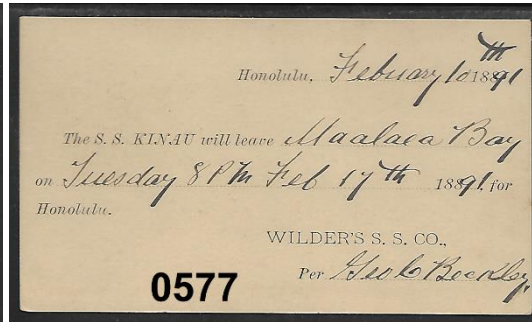 Honolulu. February 10th 1891
The S. S. KINAU will leave Maalaea Bay
on Tuesday 8 PM Feb 17th 1891. for
Honolulu.
WILDER'S S. S. CO.,
Per Geo C Beckley,
0577